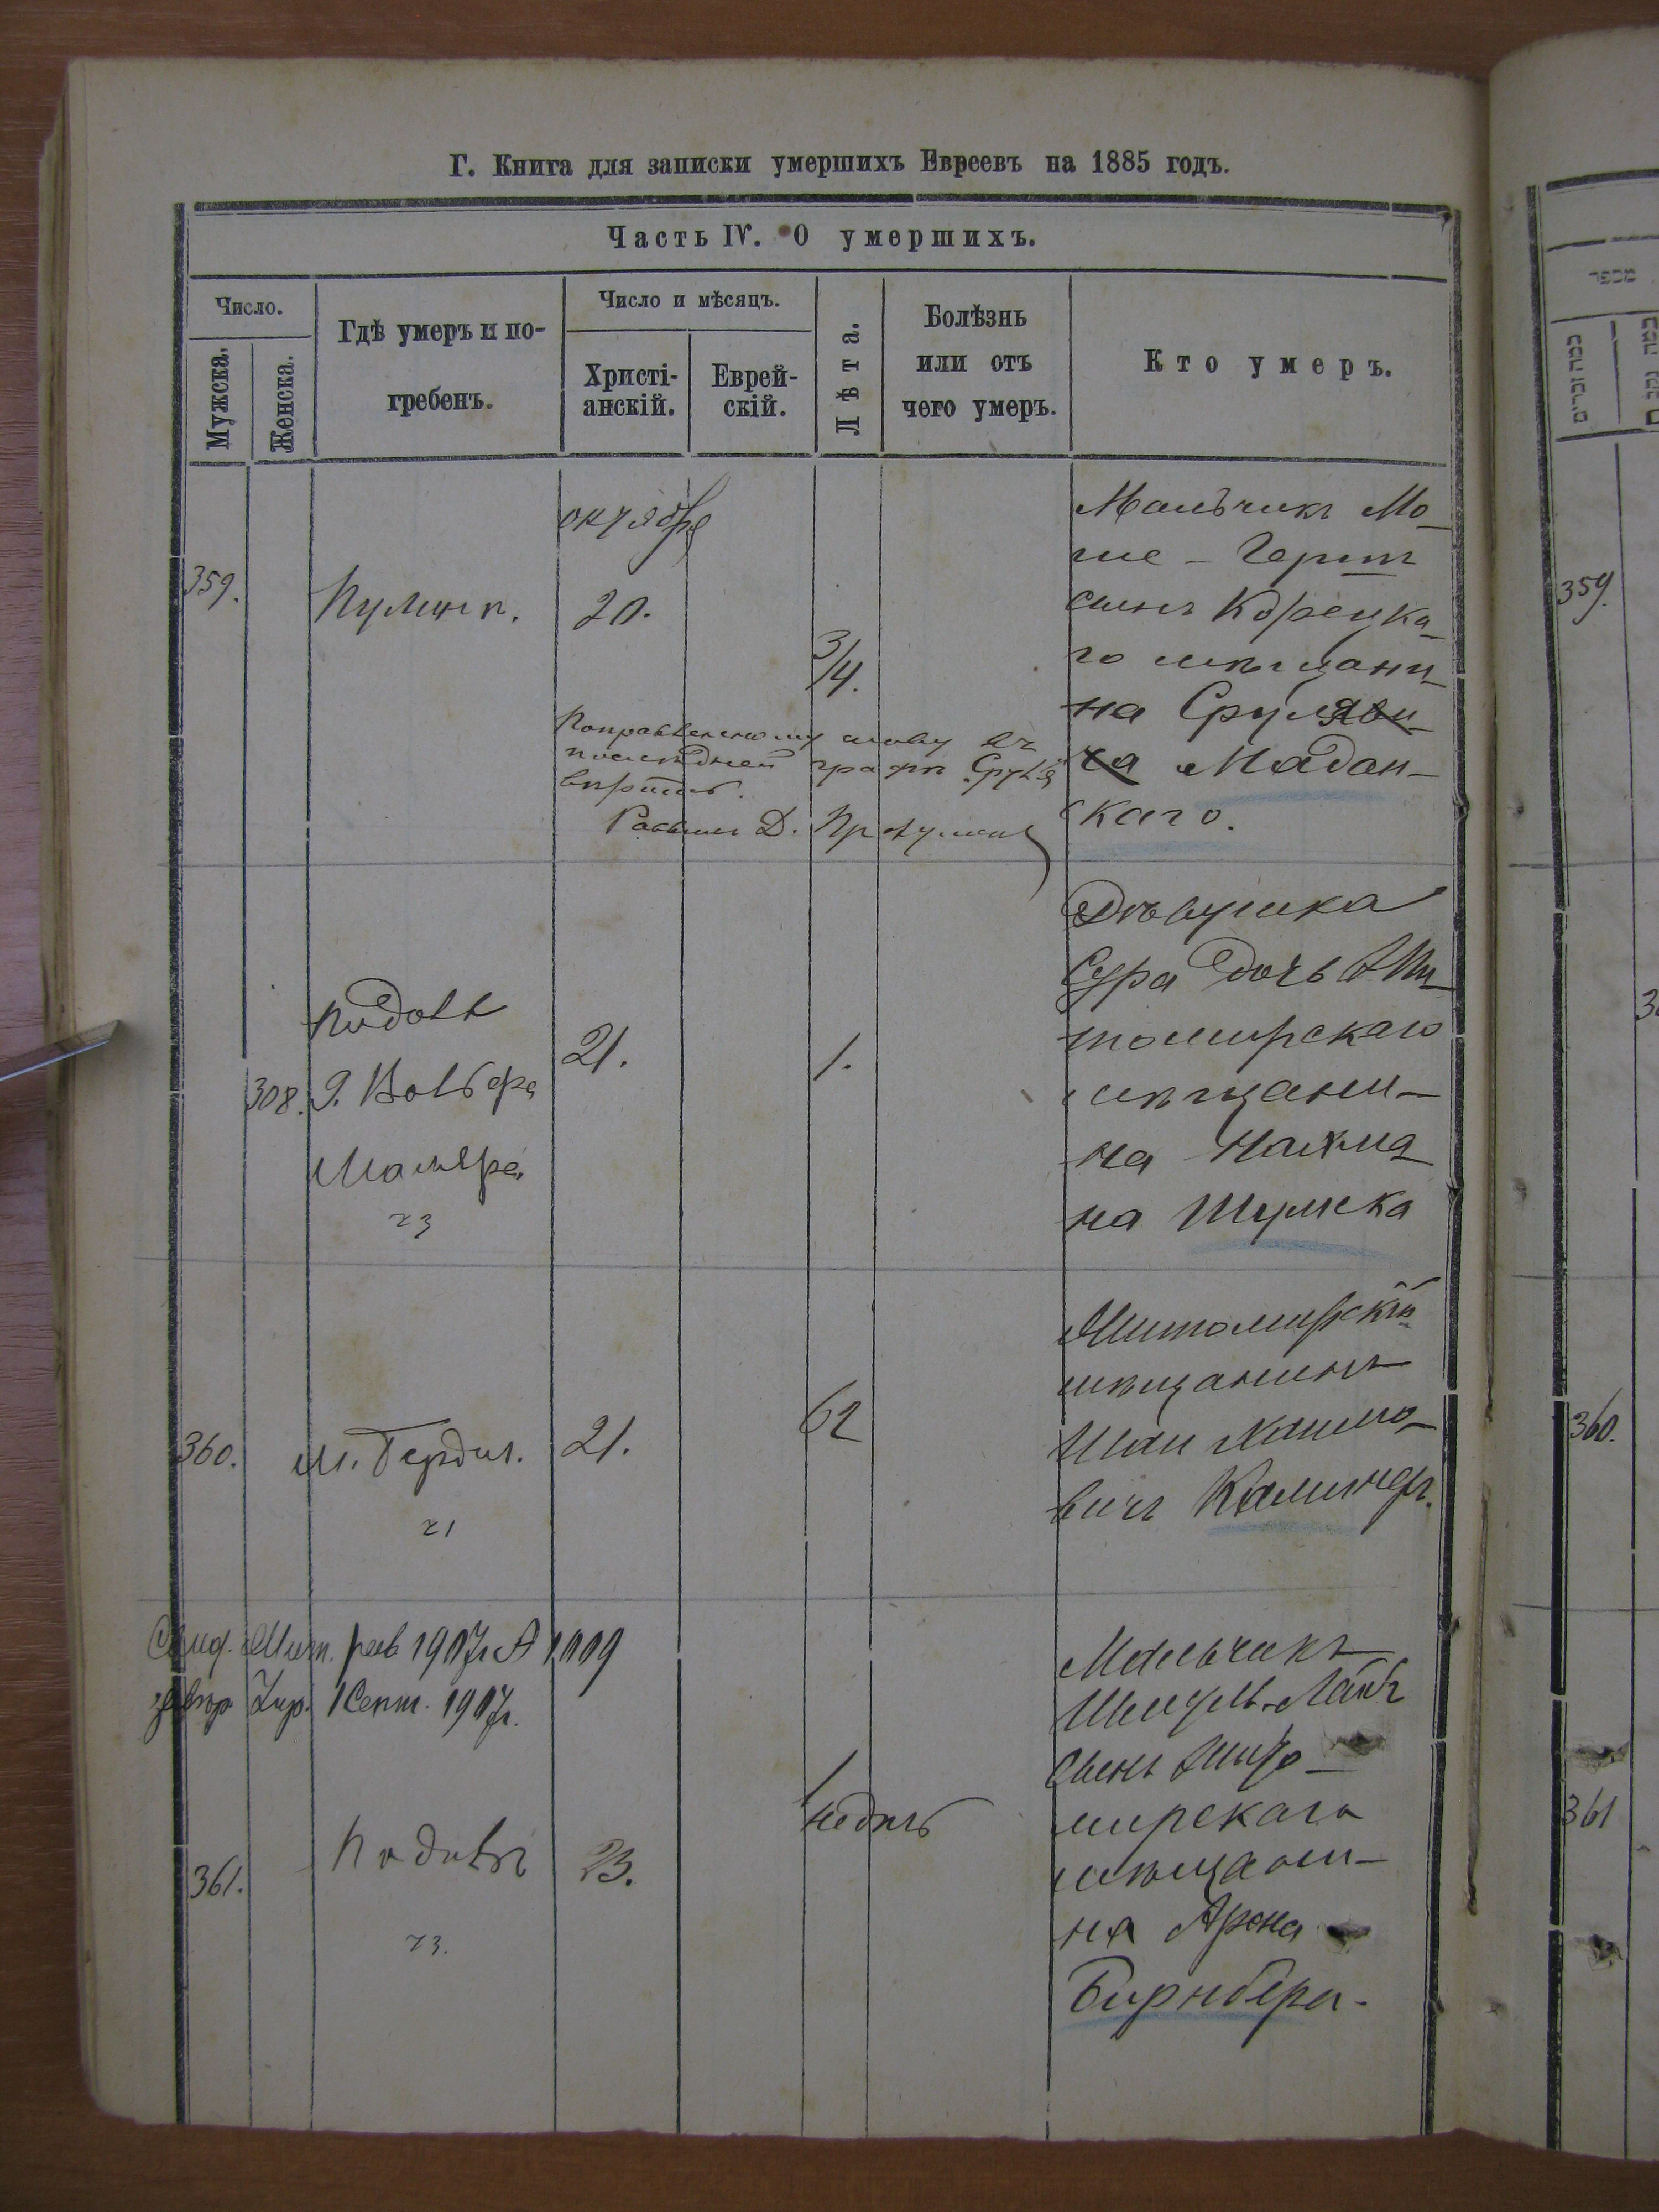 Г. Книга для записки умершихъ Евреевъ на 1885 годъ.
Часть IV. О умершихъ.
Число.
Мужска.
Женска.
Гдѣ умеръ и по-
гребенъ.
Число и мѣсяцъ.
Христі-
анскій.
Еврей-
скій.
Лѣта.
Болѣзнь
или отъ
чего умеръ.
Кто умеръ.
מספר
октября
359.
20.
3/4.
Мальчикъ Мо-
ше - Герш
сынъ Корецка-
го мѣщани-
на Сруля
Мадан-
скаго.
Поправленному слову въ
последней графѣ „Сруля"
вѣрить.
Раввинъ Д.
359.
308.
Вольфа
Маляра.
23
21.
1.
Дѣвушка
Сура дочь Жи-
томирскаго
мѣщани-
на Нахма
на Шумска
360.
м. Бердич.
21
21.
62
Житомирскій
мѣщанинъ
Хаимо-
вичъ Калинеръ.
360.
Свид. Жит. рав 1907г № 1009
1 Сент. 1907г.
361.
23.
23.
1
недѣль
Мальчикъ
Шмуль-Лейб
сынъ Жито-
мирскаго
мѣщани-
на Арона
Бирнбера.
361